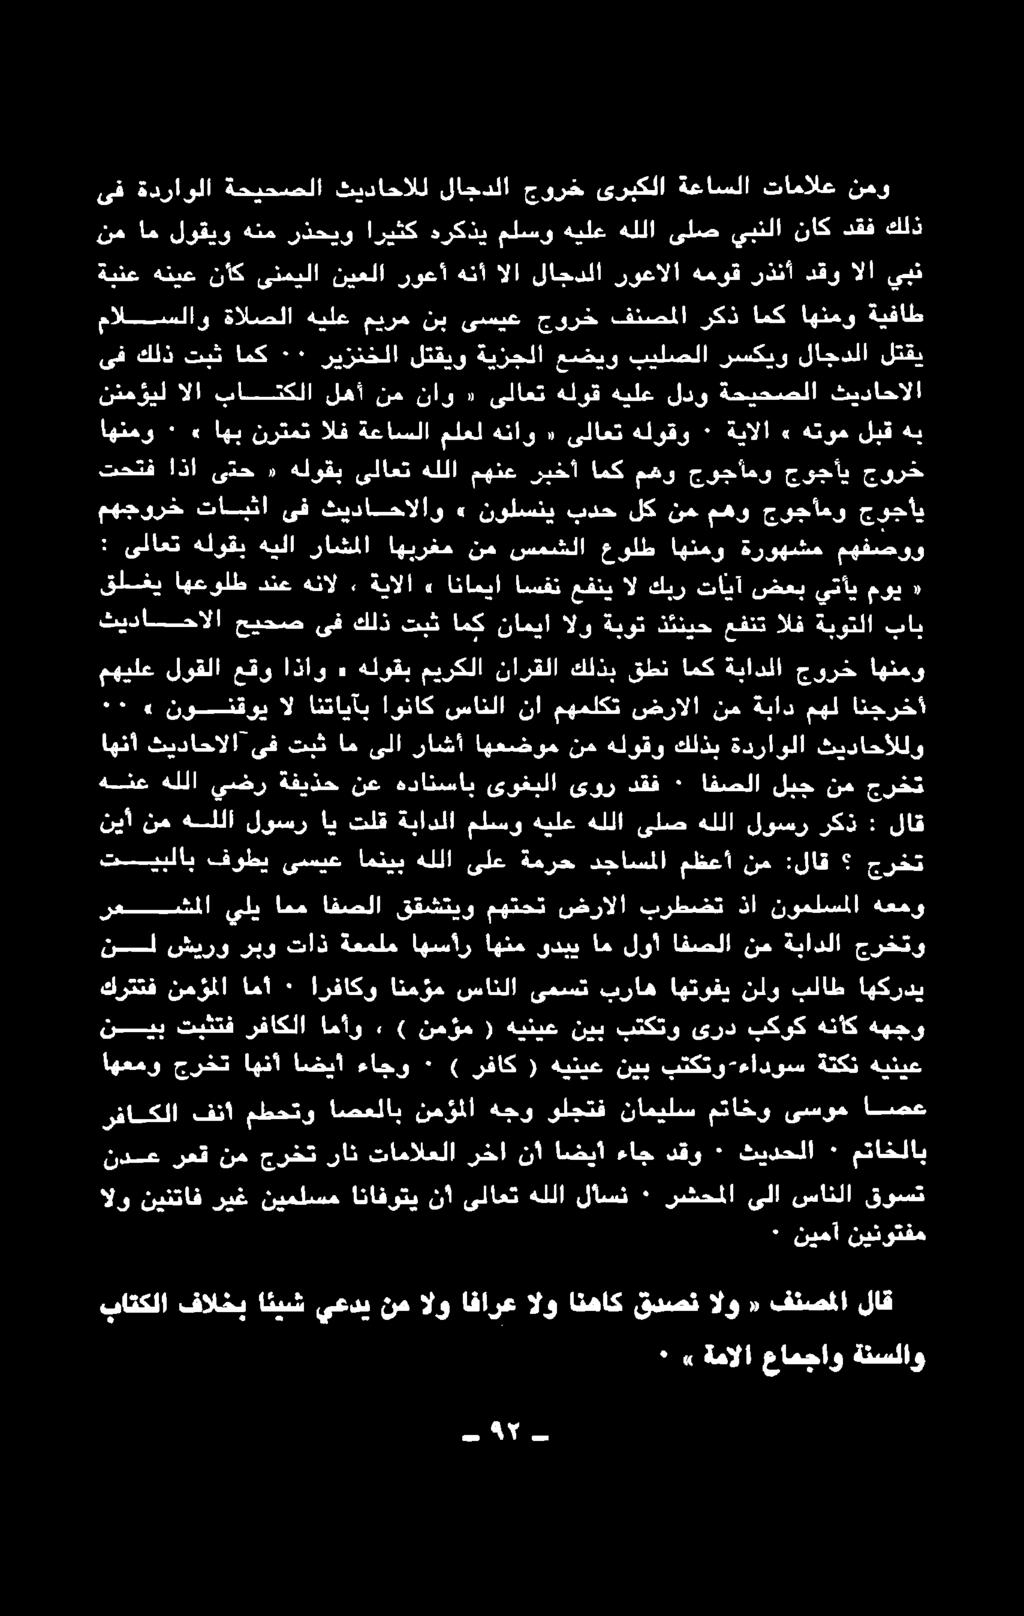 ومن علامات الساعة الكبرى خروج الدجال للاحاديث الصحيحة الواردة فى
ذلك فقد كان النبي صلى الله عليه وسلم يذكره كثيرا ويحذر منه ويقول ما من
نبي الا وقد أنذر قومه الاعور الدجال الا أنه أعور العين اليمنى كأن عينه عنبة
طافية ومنها كما ذكر المصنف خروج عيسى بن مريم عليه الصلاة والســـلام
يقتل الدجال ويكسر الصليب ويضع الجزية ويقتل الخنزير ٠٠ كما ثبت ذلك فى
الاحاديث الصحيحة ودل عليه قوله تعالى « وان من أهل الكتـــاب الا ليؤمنن
به قبل موته » الاية ٠ وقوله تعالى « وانه لعلم للساعة فلا تمترن بها » ٠ ومنها
خروج يأجوج ومأجوج وهم كما أخبر عنهم الله تعالى بقوله « حتى اذا فتحت
يأجوج ومأجوج وهم من كل حدب ينسلون » والاحـاديث فى اثبـات خروجهم
ووصفهم مشهورة ومنها طلوع الشمس من مغربها المشار اليه بقوله تعالى :
« يوم يأتي بعض آيات ربك لا ينفع نفسا ايمانا » الاية ، لانه عند طلوعها يغـلق
باب التوبة فلا تنفع حينئذ توبة ولا ايمان كما ثبت ذلك فى صحيح الاحـــاديث
ومنها خروج الدابة كما نطق بذلك القران الكريم بقوله « واذا وقع القول عليهم
أخرجنا لهم دابة من الارض تكلمهم ان الناس كانوا بآياتنا لا يوقنـــون » ٠٠
وللأحاديث الواردة بذلك وقوله من موضعها أشار الى ما ثبت فى الاحاديث أنها
تخرج من جبل الصفا ٠ فقد روى البغوى باسناده عن حذيفة رضي الله عنـه
قال : ذكر رسول الله صلى الله عليه وسلم الدابة قلت يا رسول اللـه من أين
تخرج ؟ قال: من أعظم المساجد حرمة على الله بينما عيسى يطوف بالبيـــت
ومعه المسلمون اذ تضطرب الارض تحتهم ويتشقق الصفا مما يلي المشـــعر
وتخرج الدابة من الصفا أول ما يبدو منها رأسها ملمعة ذات وبر وريش لـــن
يدركها طالب ولن يفوتها هارب تسمى الناس مؤمنا وكافرا ٠ أما المؤمن فتترك
وجهه كأنه كوكب درى وتكتب بين عينيه ( مؤمن ) ، وأما الكافر فتثبت بيـــن
عينيه نكتة سوداء وتكتب بين عينيه ( كافر ) ٠ وجاء أيضا أنها تخرج ومعها
عصـا موسى وخاتم سليمان فتجلو وجه المؤمن بالعصا وتحطم أنف الكـافر
بالخاتم ٠ الحديث ٠ وقد جاء أيضا أن اخر العلامات نار تخرج من قعر عـدن
تسوق الناس الى المحشر ٠ نسأل الله تعالى أن يتوفانا مسلمين غير فاتنين ولا
مفتونين آمين ٠
قال المصنف « ولا نصدق كاهنا ولا عرافا ولا من يدعي شيئا بخلاف الكتاب
والسنة واجماع الامة » ٠
ـ ٩٢ ـ